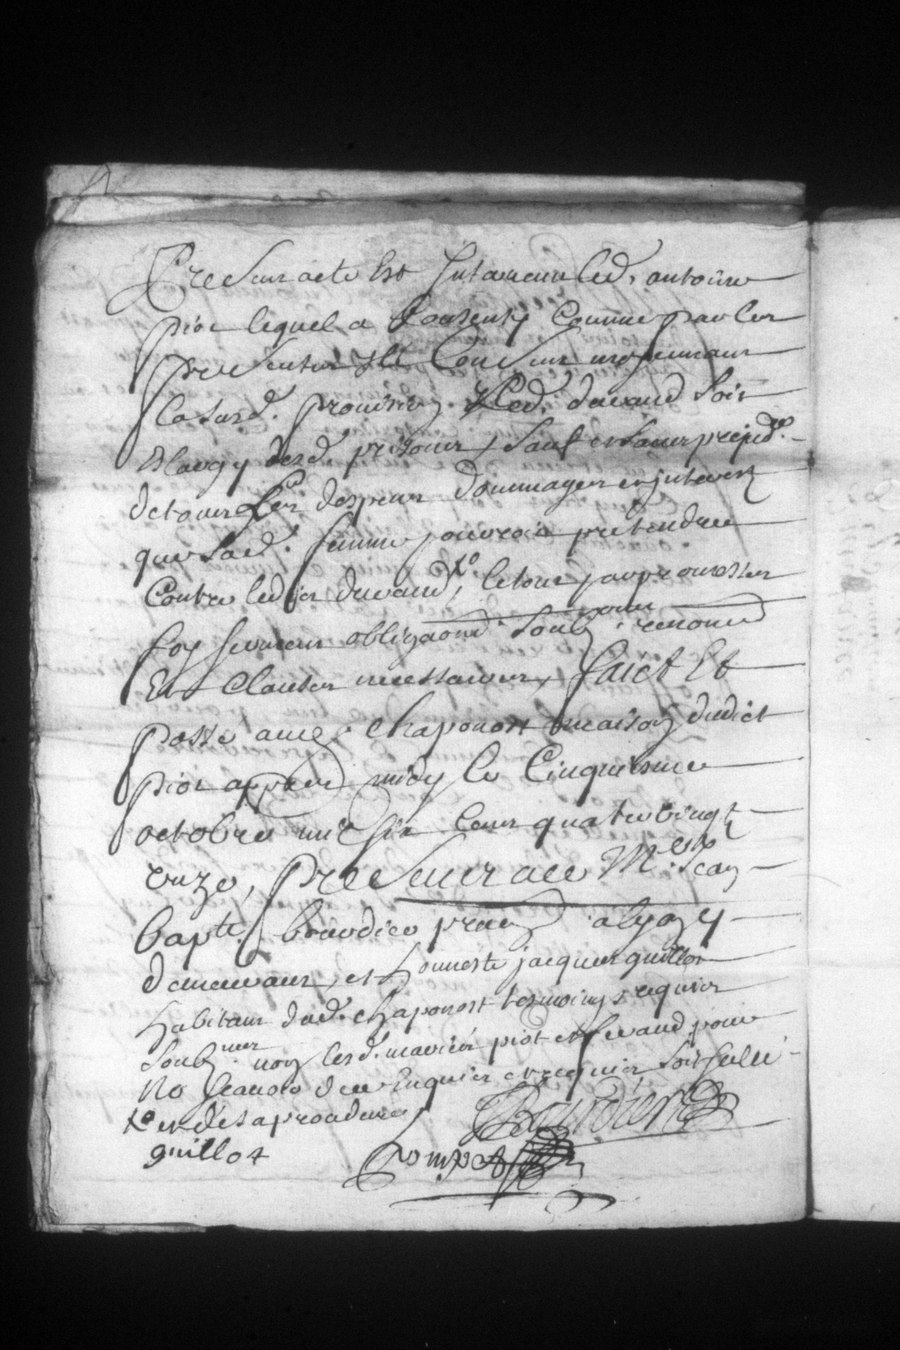 Present acte est Intervenu led. antoine
piot lequel a Consenty Comme par les
presentes Il Consent moyennant
lasusd. provision led. durand soit
Eslargy desd. prisons, sauf et sans prejud.
de tous Les despens dommages et interestz
que sad. femme pourroit pretendre
Contre led. durand, xo le tout par promesses
foy serment obligaons soubz renonc
Et Clauses necessaires, faict Et
passé aud. chaponost maison dudict
piot appres midy le Cinquiesme
octobre mil six Cens quatre vingt
unze, presens ace Mestre Jean
bapt. bourdier prat. a lyon y
demeurant, et honneste jacques guillot
habitant dud. chaponost tesmoins requis
soubznez non lesd. mariés piot et ferand pour
No scavoir de ce Enquis et requis soit scellé
xo et desaprouduve
Bourdier
guillot
Compost